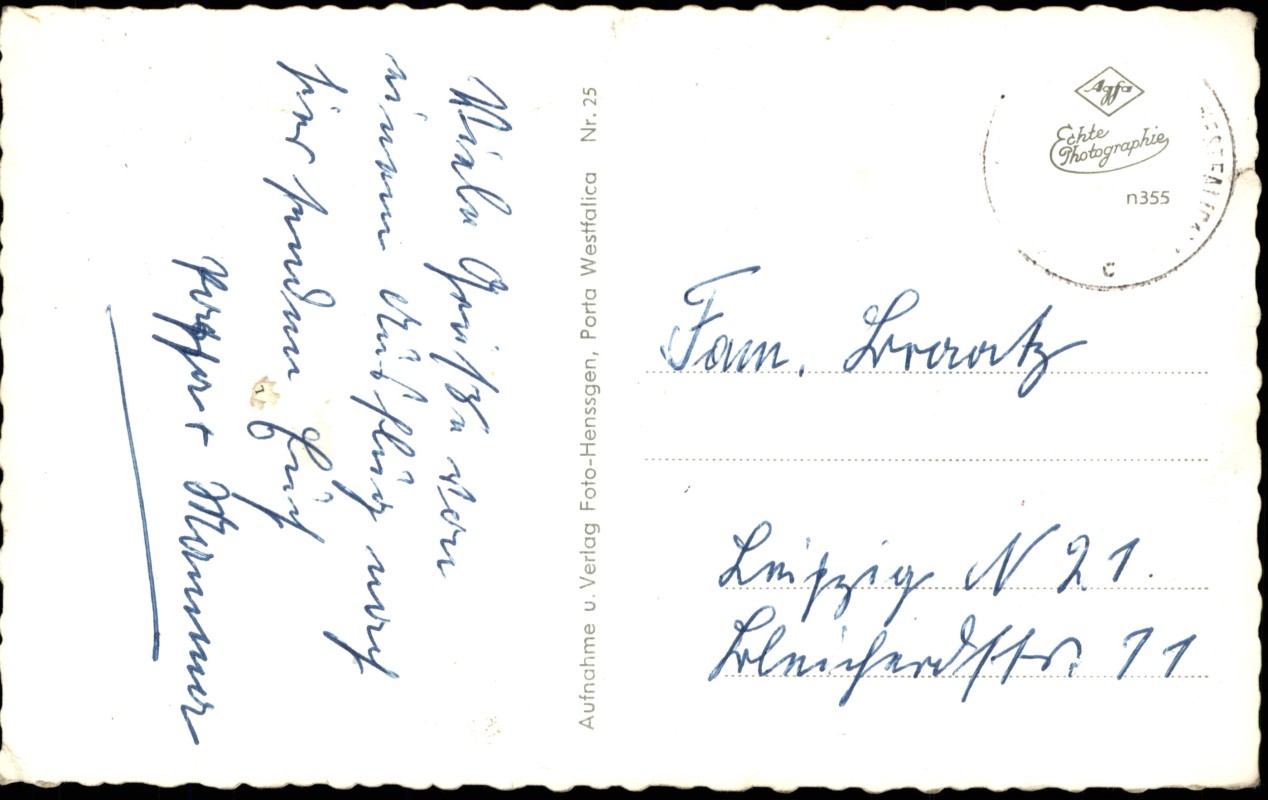 Viele Grüße von
einem Ausflug nach
hier senden Euch
Aufnahme u. Verlag Foto-Henssgen, Porta Westfalica Nr. 25
Agfa
Echte
Photographie
n355
WESTFALICA
c
Fam.
Leipzig N 21.
11